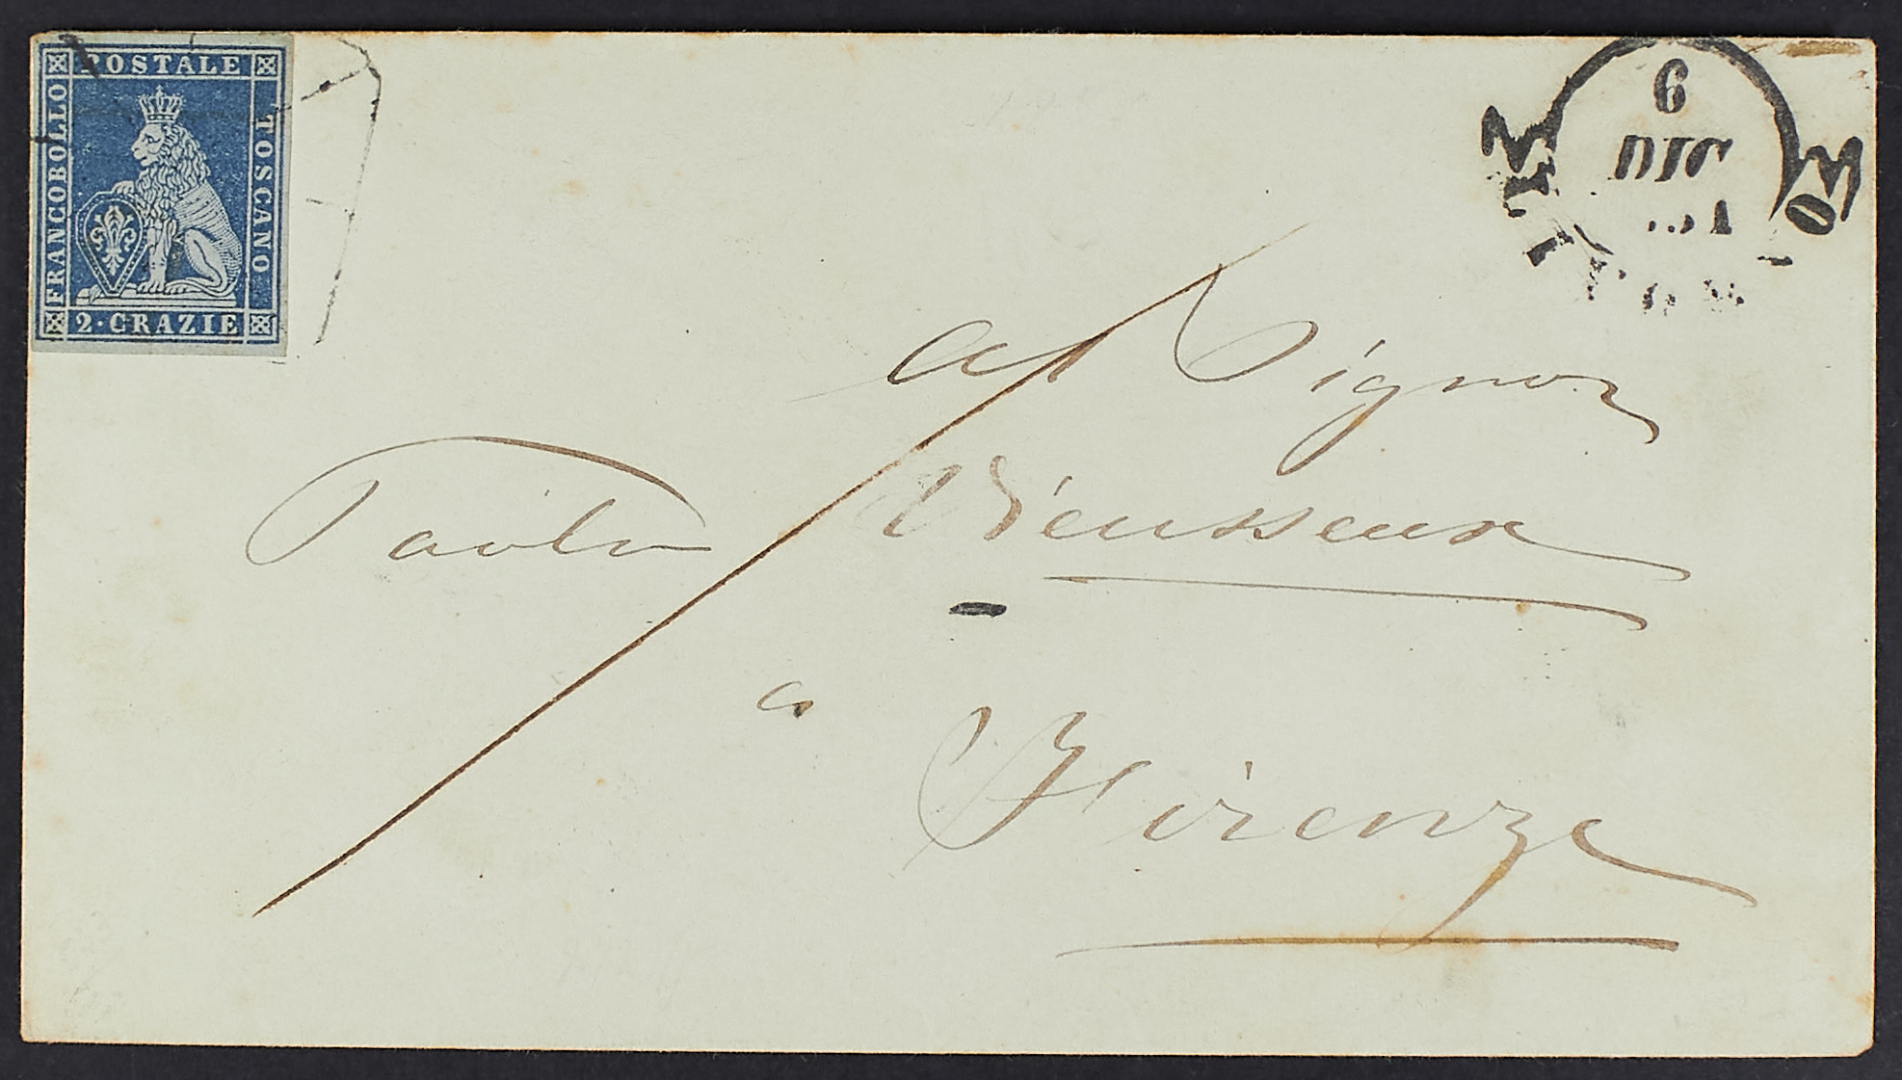 POSTALE
FRANCOBOLLO
TOSCANO
2·CRAZIE
6
DIC
51
Al Signor
Paolo Vieusseux
a
Firenze